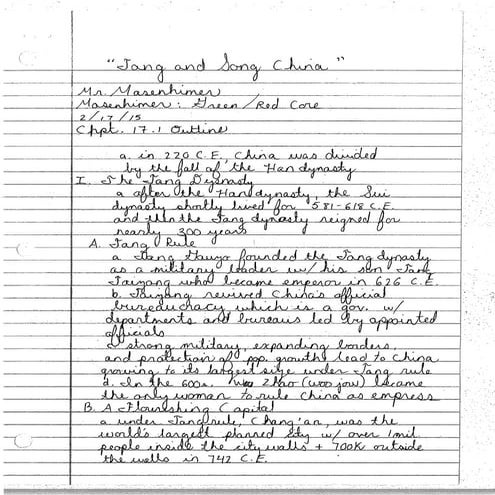 "Tang and Song China"
Mr. Masenhimer
Masenhimer: Green/Red Core
2/17/15
Chpt. 17.1 Outline
a. in 220 C.E., China was divided
by the fall of the Han dynasty
I. The Tang Dynasty
a after the Han dynasty, the Sui
dynasty shortly lived for 581-618 C.E.
and then the Tang dynasty reigned for
nearly 300 years
A. Tang Rule
a Tang Gauzo founded the Tang dynasty
as a military leader w/ his son Tang
Taizong who became emperor in 626 C.E.
b. Taizong revived China's official
bureaucracy which is a gov. w/
departments and bureaus led by appointed
officials
c strong military, expanding borders,
and protection of pop. growth lead to China
growing to its largest size under Tang rule
d. In the 600s, Wu Zhao (woo jow) became
the only woman to rule China as empress
B. A Flourishing Capital
a under Tang rule, Chang'an, was the
world's largest planned city w/ over 1 mil.
people inside the city walls + 700K outside
the walls in 742 C.E.